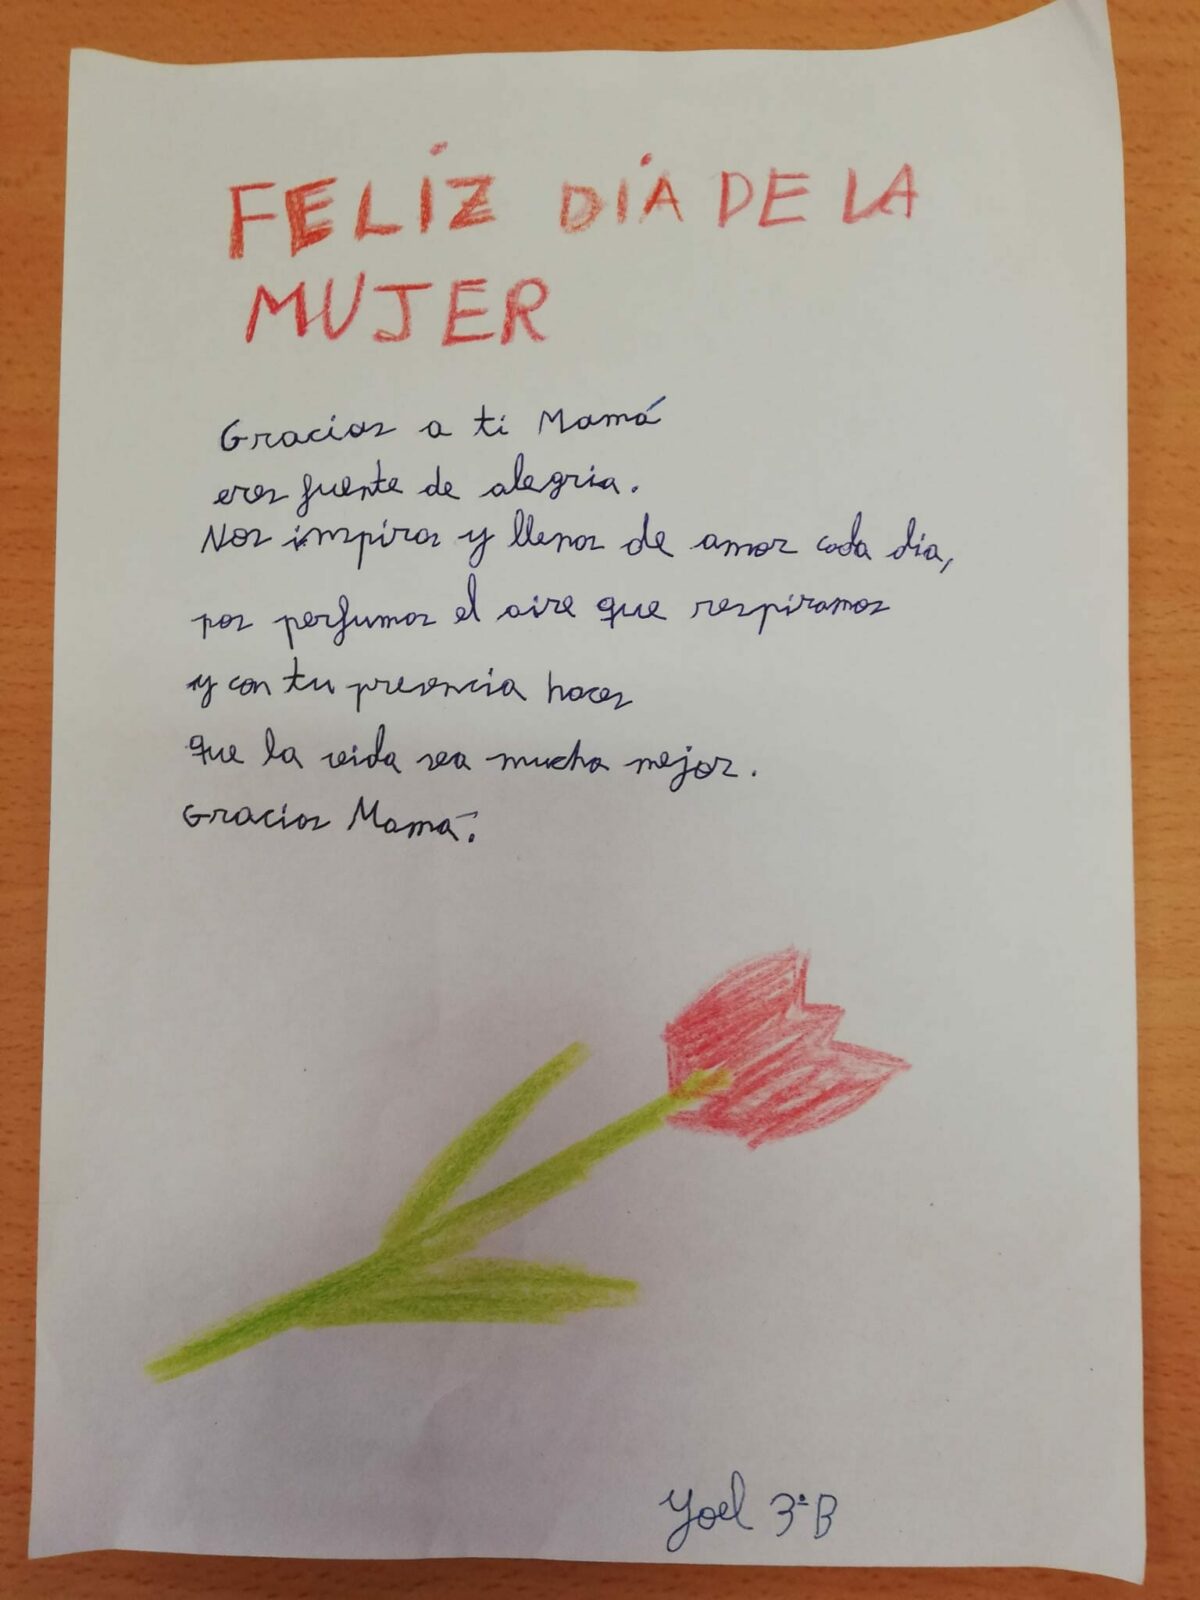 FELIZ DÍA DE LA
MUJER
Gracias a ti Mamá
eres fuente de alegria.
Nos inspiras y llenas de amor cada día,
nos perfumas el aire que respiramos
y con tu presencia haces
que la vida sea mucho mejor.
Gracias Mamá.
Yoel 3ºB